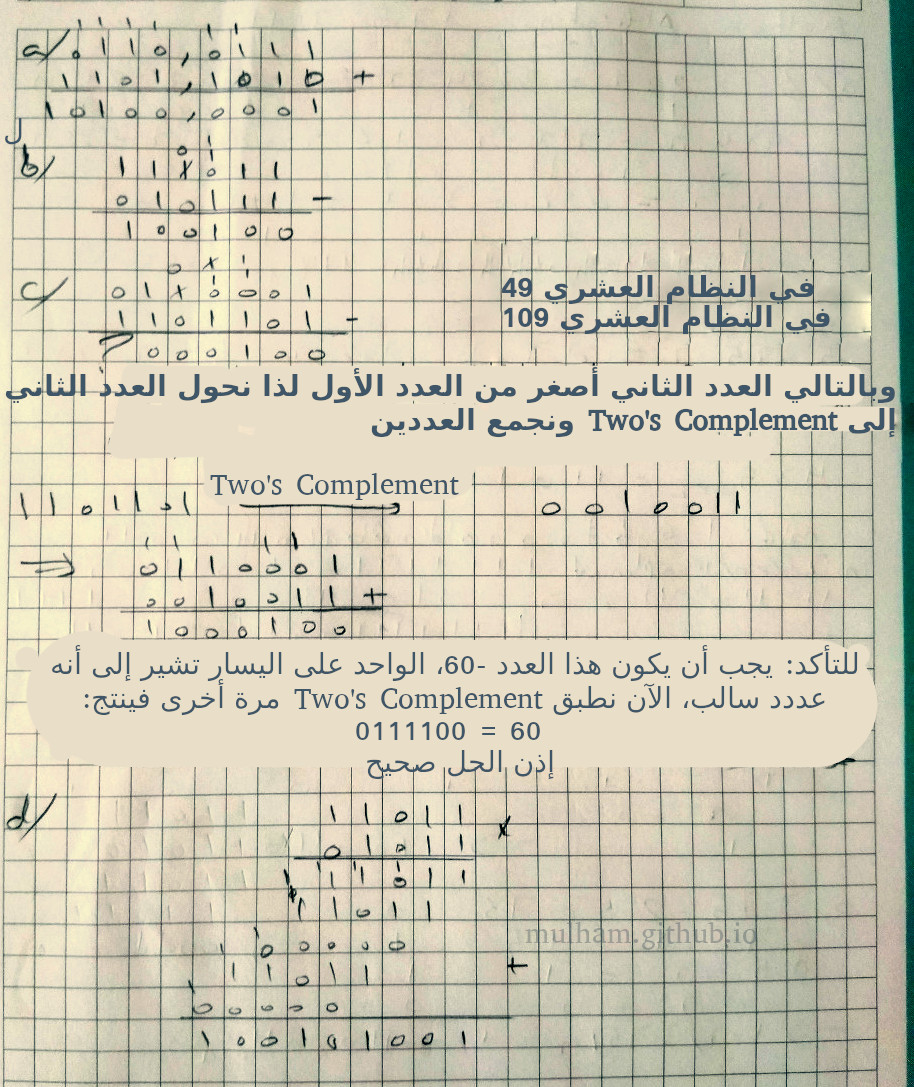 a/ 0 1 1 0 , 0 1 1 1
1 1 0 1 , 1 0 1 0 +
1 0 1 0 0 , 0 0 0 1
0 1
b/ 1 1 1 0 1 1
0 1 0 1 1 1 -
1 0 0 1 0 0
c/ 0 1 1 0 0 0 1
1 1 0 1 1 0 1 -
? 0 0 0 1 0 0
في النظام العشري 49
في النظام العشري 109
وبالتالي العدد الثاني أصغر من العدد الأول لذا نحول العدد الثاني
إلى Two's Complement ونجمع العددين
Two's Complement
1 1 0 1 1 0 1 → 0 0 1 0 0 1 1
1 1 1 1
⇒ 0 1 1 0 0 0 1
0 0 1 0 0 1 1 +
1 0 0 0 1 0 0
للتأكد: يجب أن يكون هذا العدد -60، الواحد على اليسار تشير إلى أنه
عددد سالب، الآن نطبق Two's Complement مرة أخرى فينتج:
0111100 = 60
إذن الحل صحيح
d/
1 1 0 1 1 x
0 1 0 1 1
1 1 0 1 1
1 1 0 1 1
0 0 0 0 0
mulham.github.io
1 1 0 1 1 +
0 0 0 0 0
1 0 0 1 0 1 0 0 1